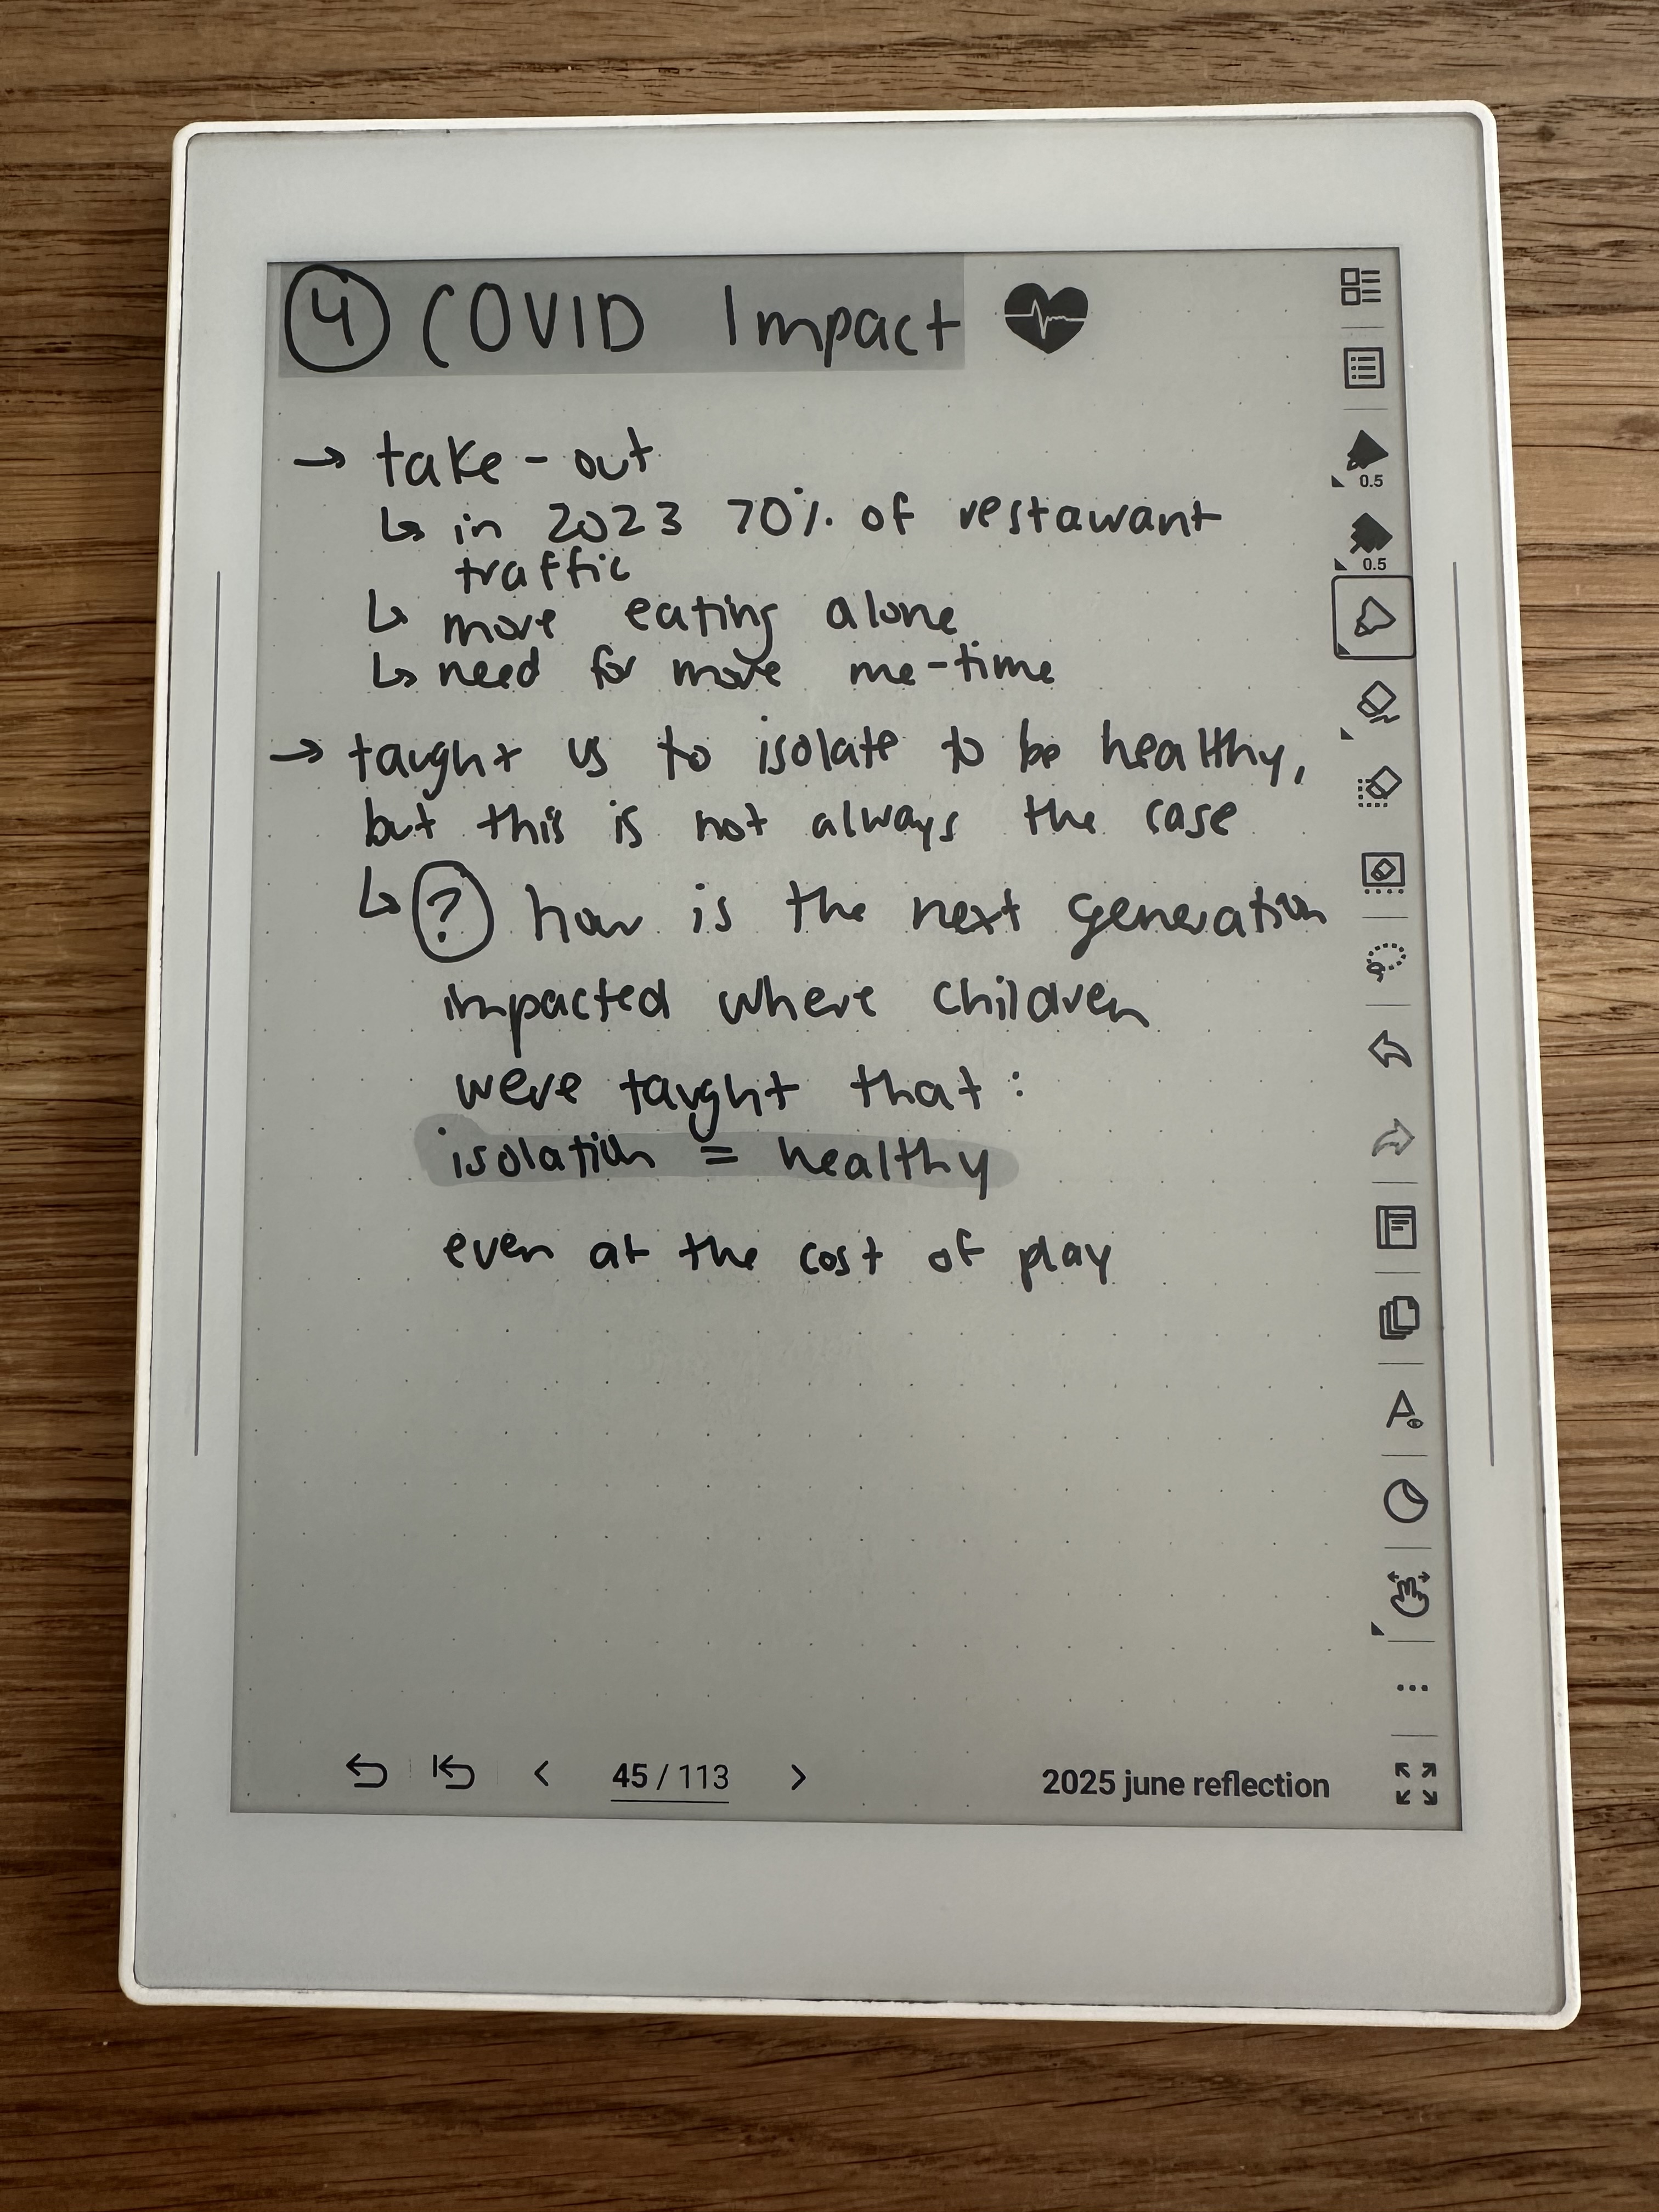 4 COVID Impact
→ take-out
↳ in 2023 70% of restaurant
traffic
↳ more eating alone
↳ need for more me-time
→ taught us to isolate to be healthy,
but this is not always the case
↳ ? how is the next generation
impacted where children
were taught that:
isolation = healthy
even at the cost of play
0.5
0.5
45 / 113
2025 june reflection